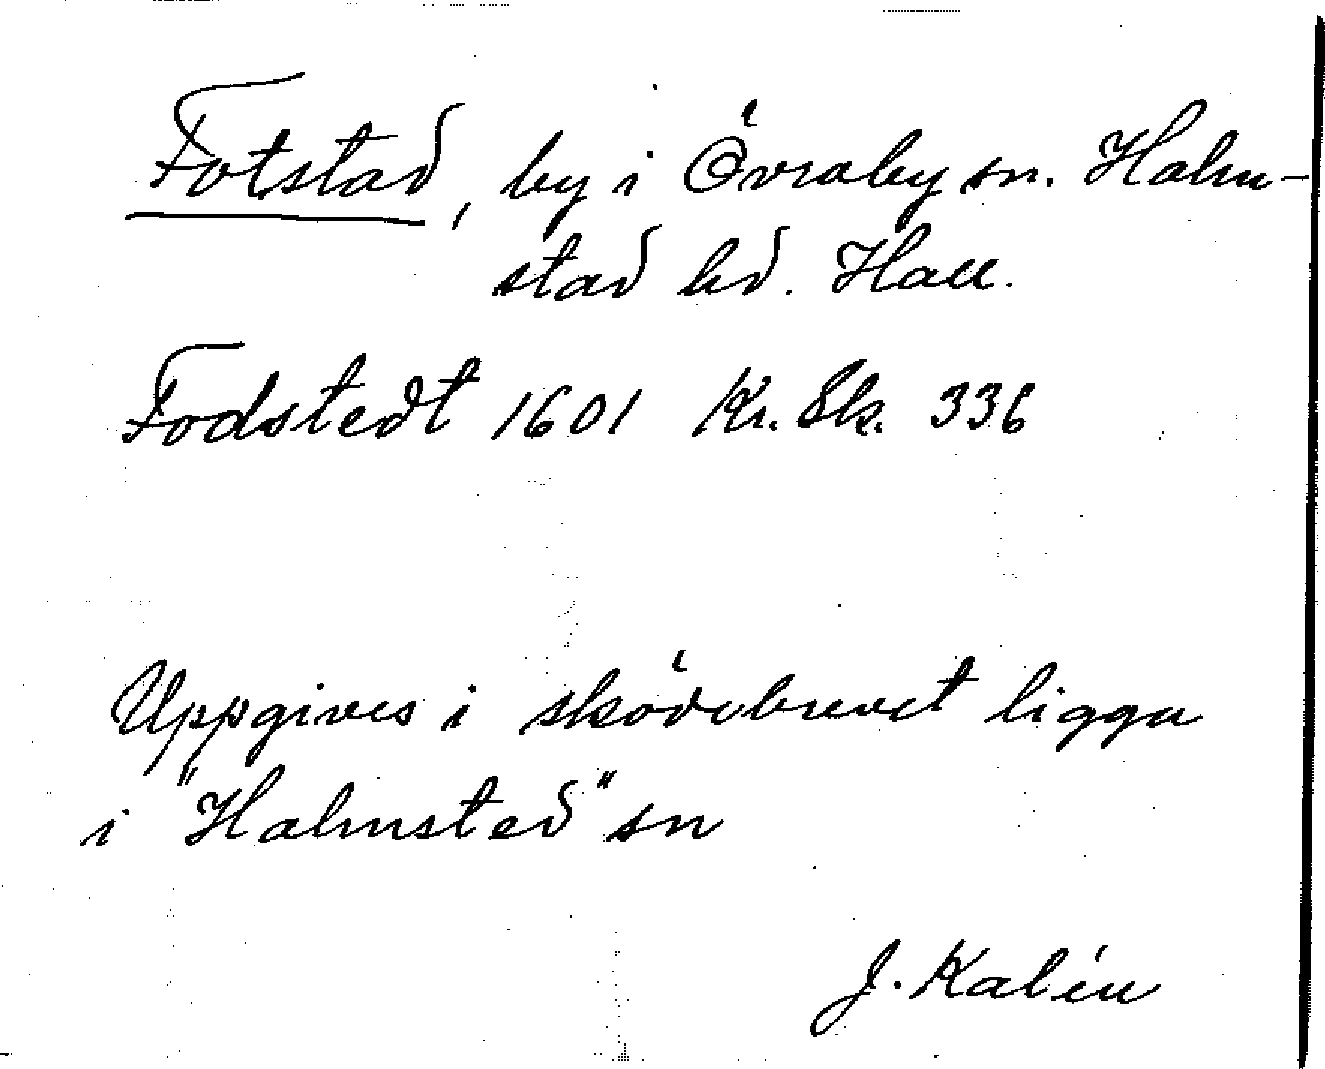 Fotstad, by i Övraby sn. Halm-
stad hd. Hall.
Fodstedt 1601 Kr. Sk. 336
Uppgives i sködebrevet ligga
i "Halmsted" sn
J. Kalén